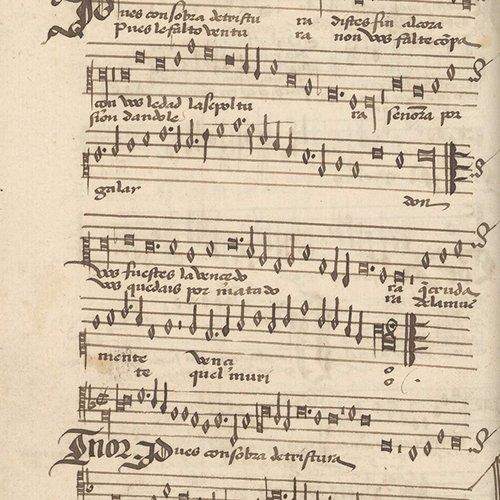 Pues con sobra de tristu ra distes fin al cora
Pues le falto ventu ra non vos falte cōpa
con vos ledad la sepoltu ra señora por
sion dandole
galar don
vos fuestes la vencedo ra q̄ cruda
vos quedais por matado ra de la mue
mente venci o
te quel muri o
Tenor Pues con sobra de tristura